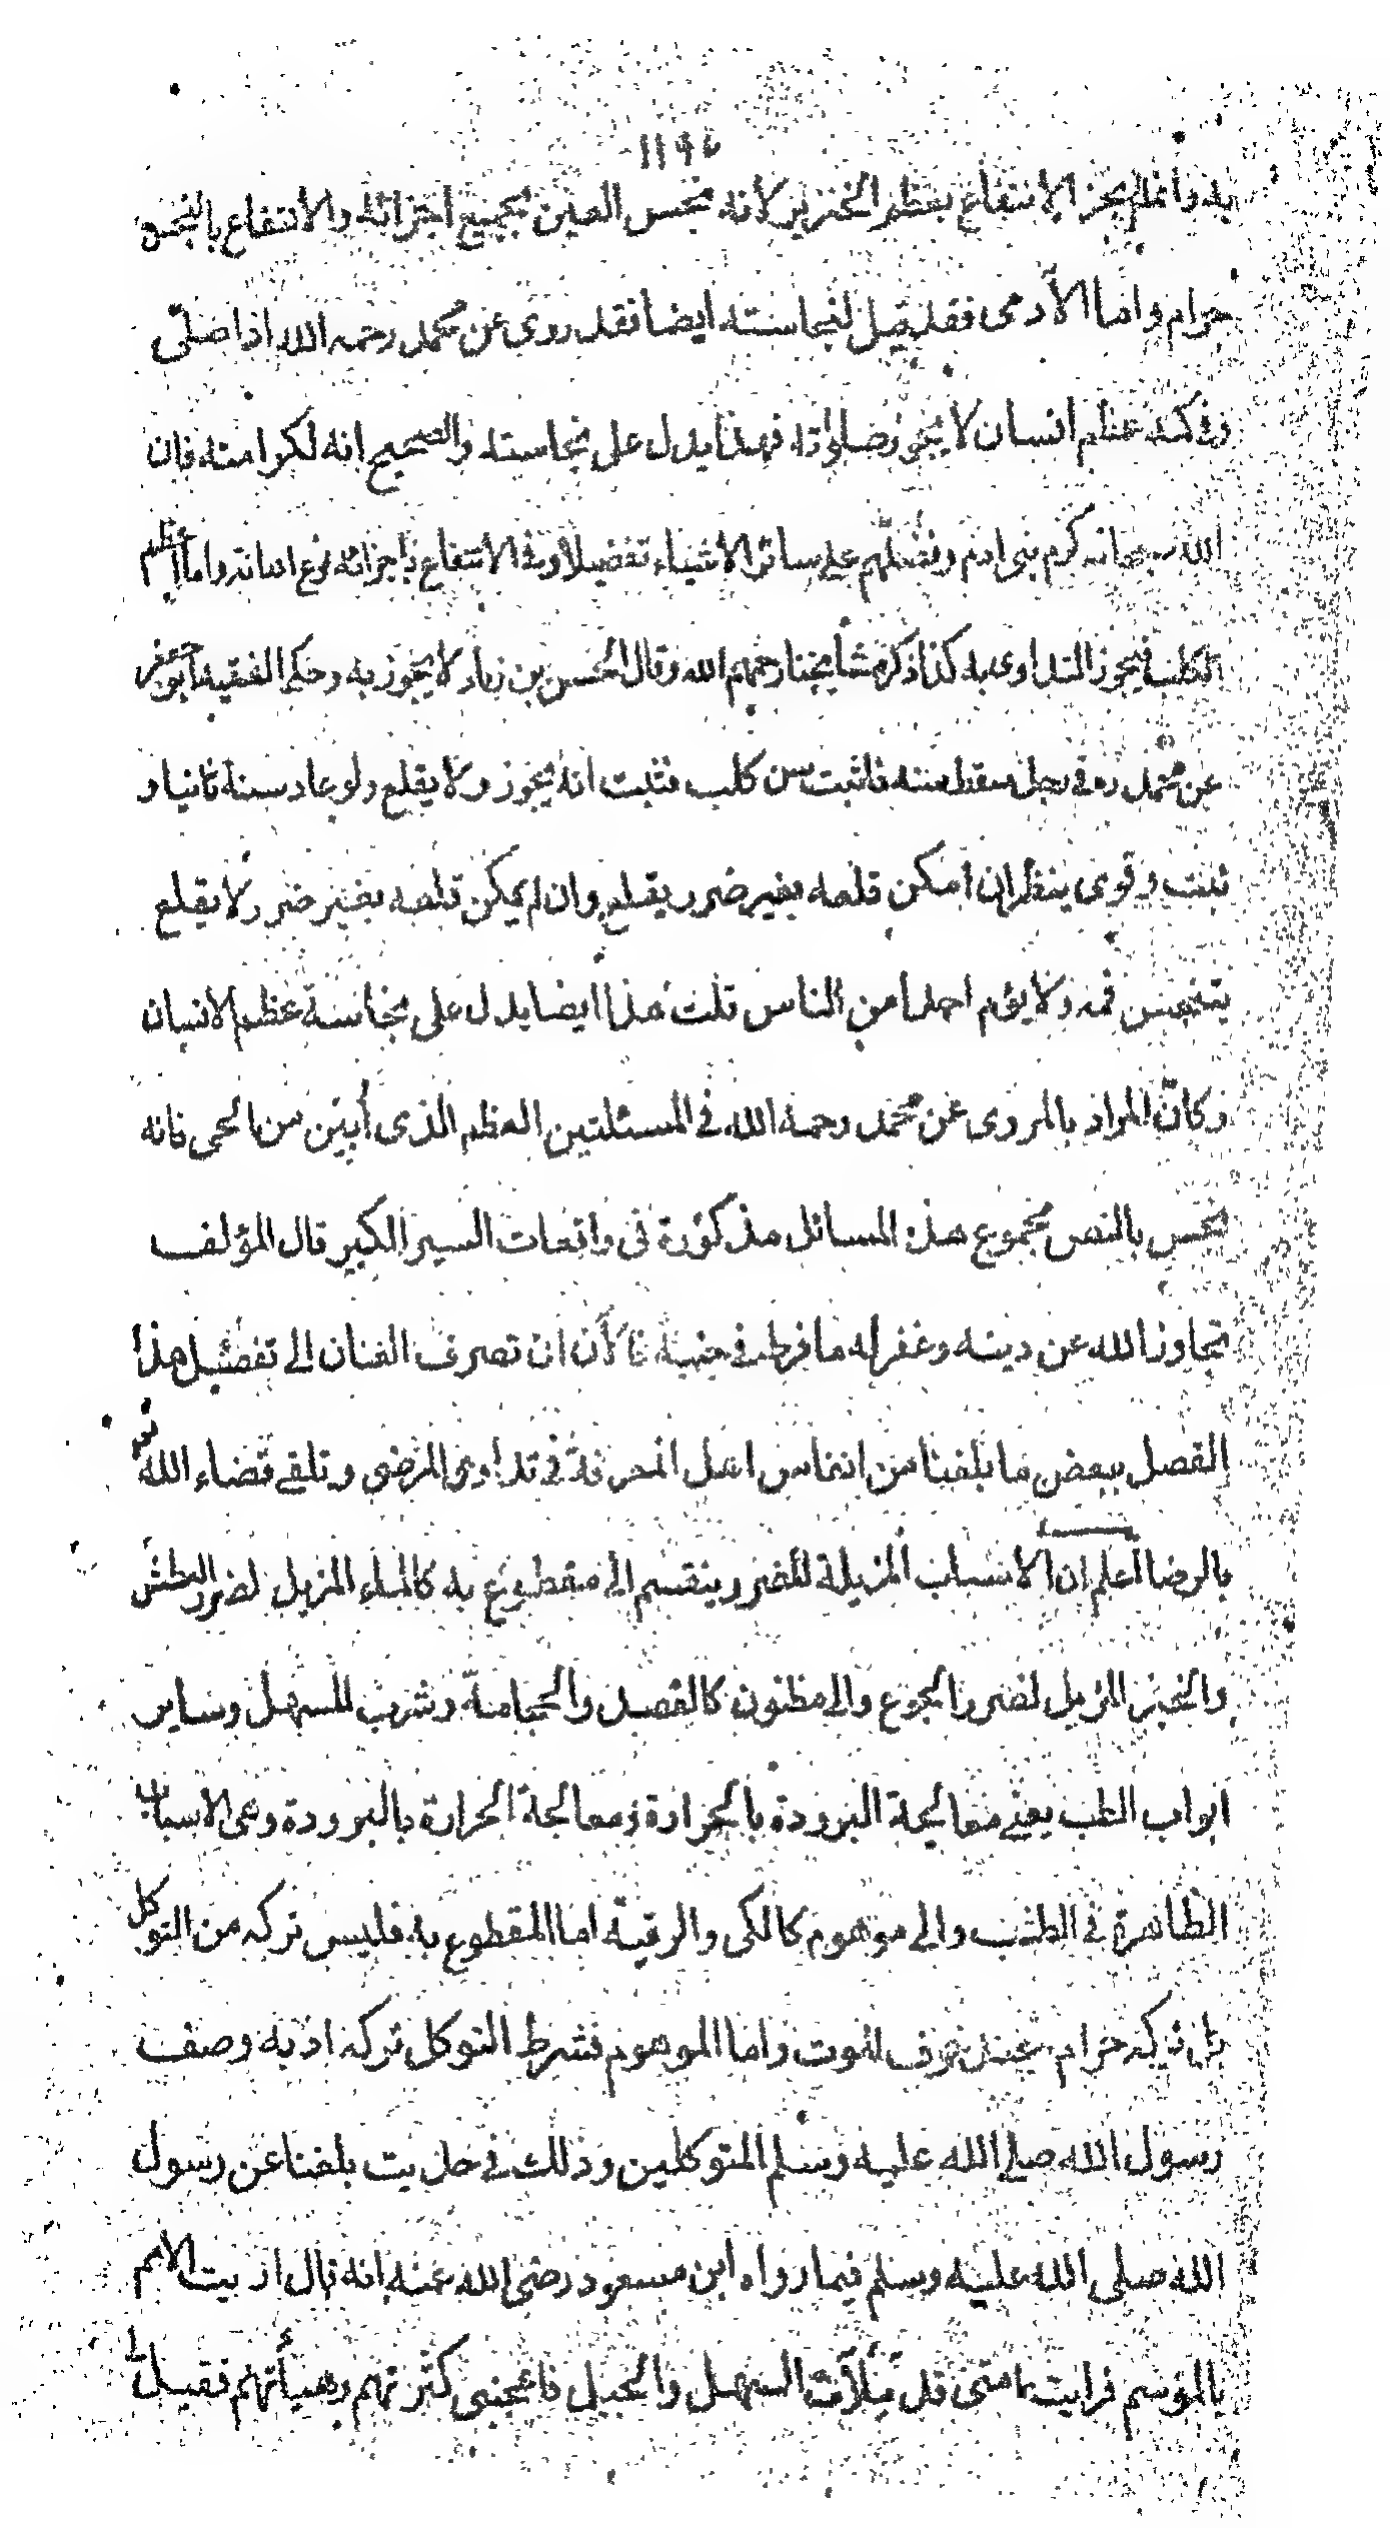 ١١٩٤
به وانما لم يجز الانتفاع بعظم الخنزير لانه نجس العين بجميع اجزائه والانتفاع بالنجس
حرام واما الآدمى فقد قيل لنجاسته ايضا فقد روى عن محمد رحمه الله اذا صلى
وفى كمه عظم انسان لا يجوز صلواته فهذا يدل على نجاسته والصحيح انه لكرامته فان
الله سبحانه كرم بنى ادم وفضلهم على سائر الاشياء تفضيلا وفى الانتفاع باجزائه نوع اهانة واما عظم
الكلب فيجوز التداوى به كذا ذكر مشايخنا رحمهم الله وقال الحسن بن زياد لا يجوز به وحكى الفقيه ابو جعفر
عن محمد ره فى رجل سقط سنه فاثبت سن كلب فثبت انه يجوز ولا يقلع ولو عاد سنه ثانيا و
ثبت وقوى ينظر ان امكن قلعه بغير ضرر يقلع وان لم يمكن قلعه بغير ضرر لا يقلع
يتنجس فمه ولا يؤم احدا من الناس قلت هذا ايضا يدل على نجاسة عظم الانسان
وكان المراد بالمروى عن محمد رحمه الله فى المسئلتين العظم الذى أبين من الحى فانه
نجس بالنص مجموع هذه المسائل مذكورة فى واقعات السير الكبير قال المؤلف
تجاوز الله عن دينه وغفر له ما فرط فى جنبه فا كأن ان تصرف العنان الى تفصيل هذا
الفصل ببعض ما بلغنا من انفاس اهل المعرفة فى تداوى المرضى وتلقى قضاء الله تعو
بالرضا اعلم ان الاسباب المزيلة للضرر ينقسم الى مقطوع به كالماء المزيل لضرر العطش
والخبز المزيل لضرر الجوع والى مظنون كالفصد والحجامة وشرب المسهل وساير
ابواب الطب يعنى معالجة البرودة بالحرارة ومعالجة الحرارة بالبرودة وهى الاسباب
الظاهرة فى الطب والى موهوم كالكى والرقية اما المقطوع به فليس تركه من التوكل
بل تركه حرام عند خوف الموت واما الموهوم فشرط التوكل تركه اذ به وصف
رسول الله صلى الله عليه وسلم المتوكلين وذلك فى حديث بلغنا عن رسول
الله صلى الله عليه وسلم فيما رواه ابن مسعود رضى الله عنه انه قال اريت الامم
بالموسم فرايت امتى قد ملأت السهل والجبل فاعجبنى كثرتهم وهيأتهم فقيل لى